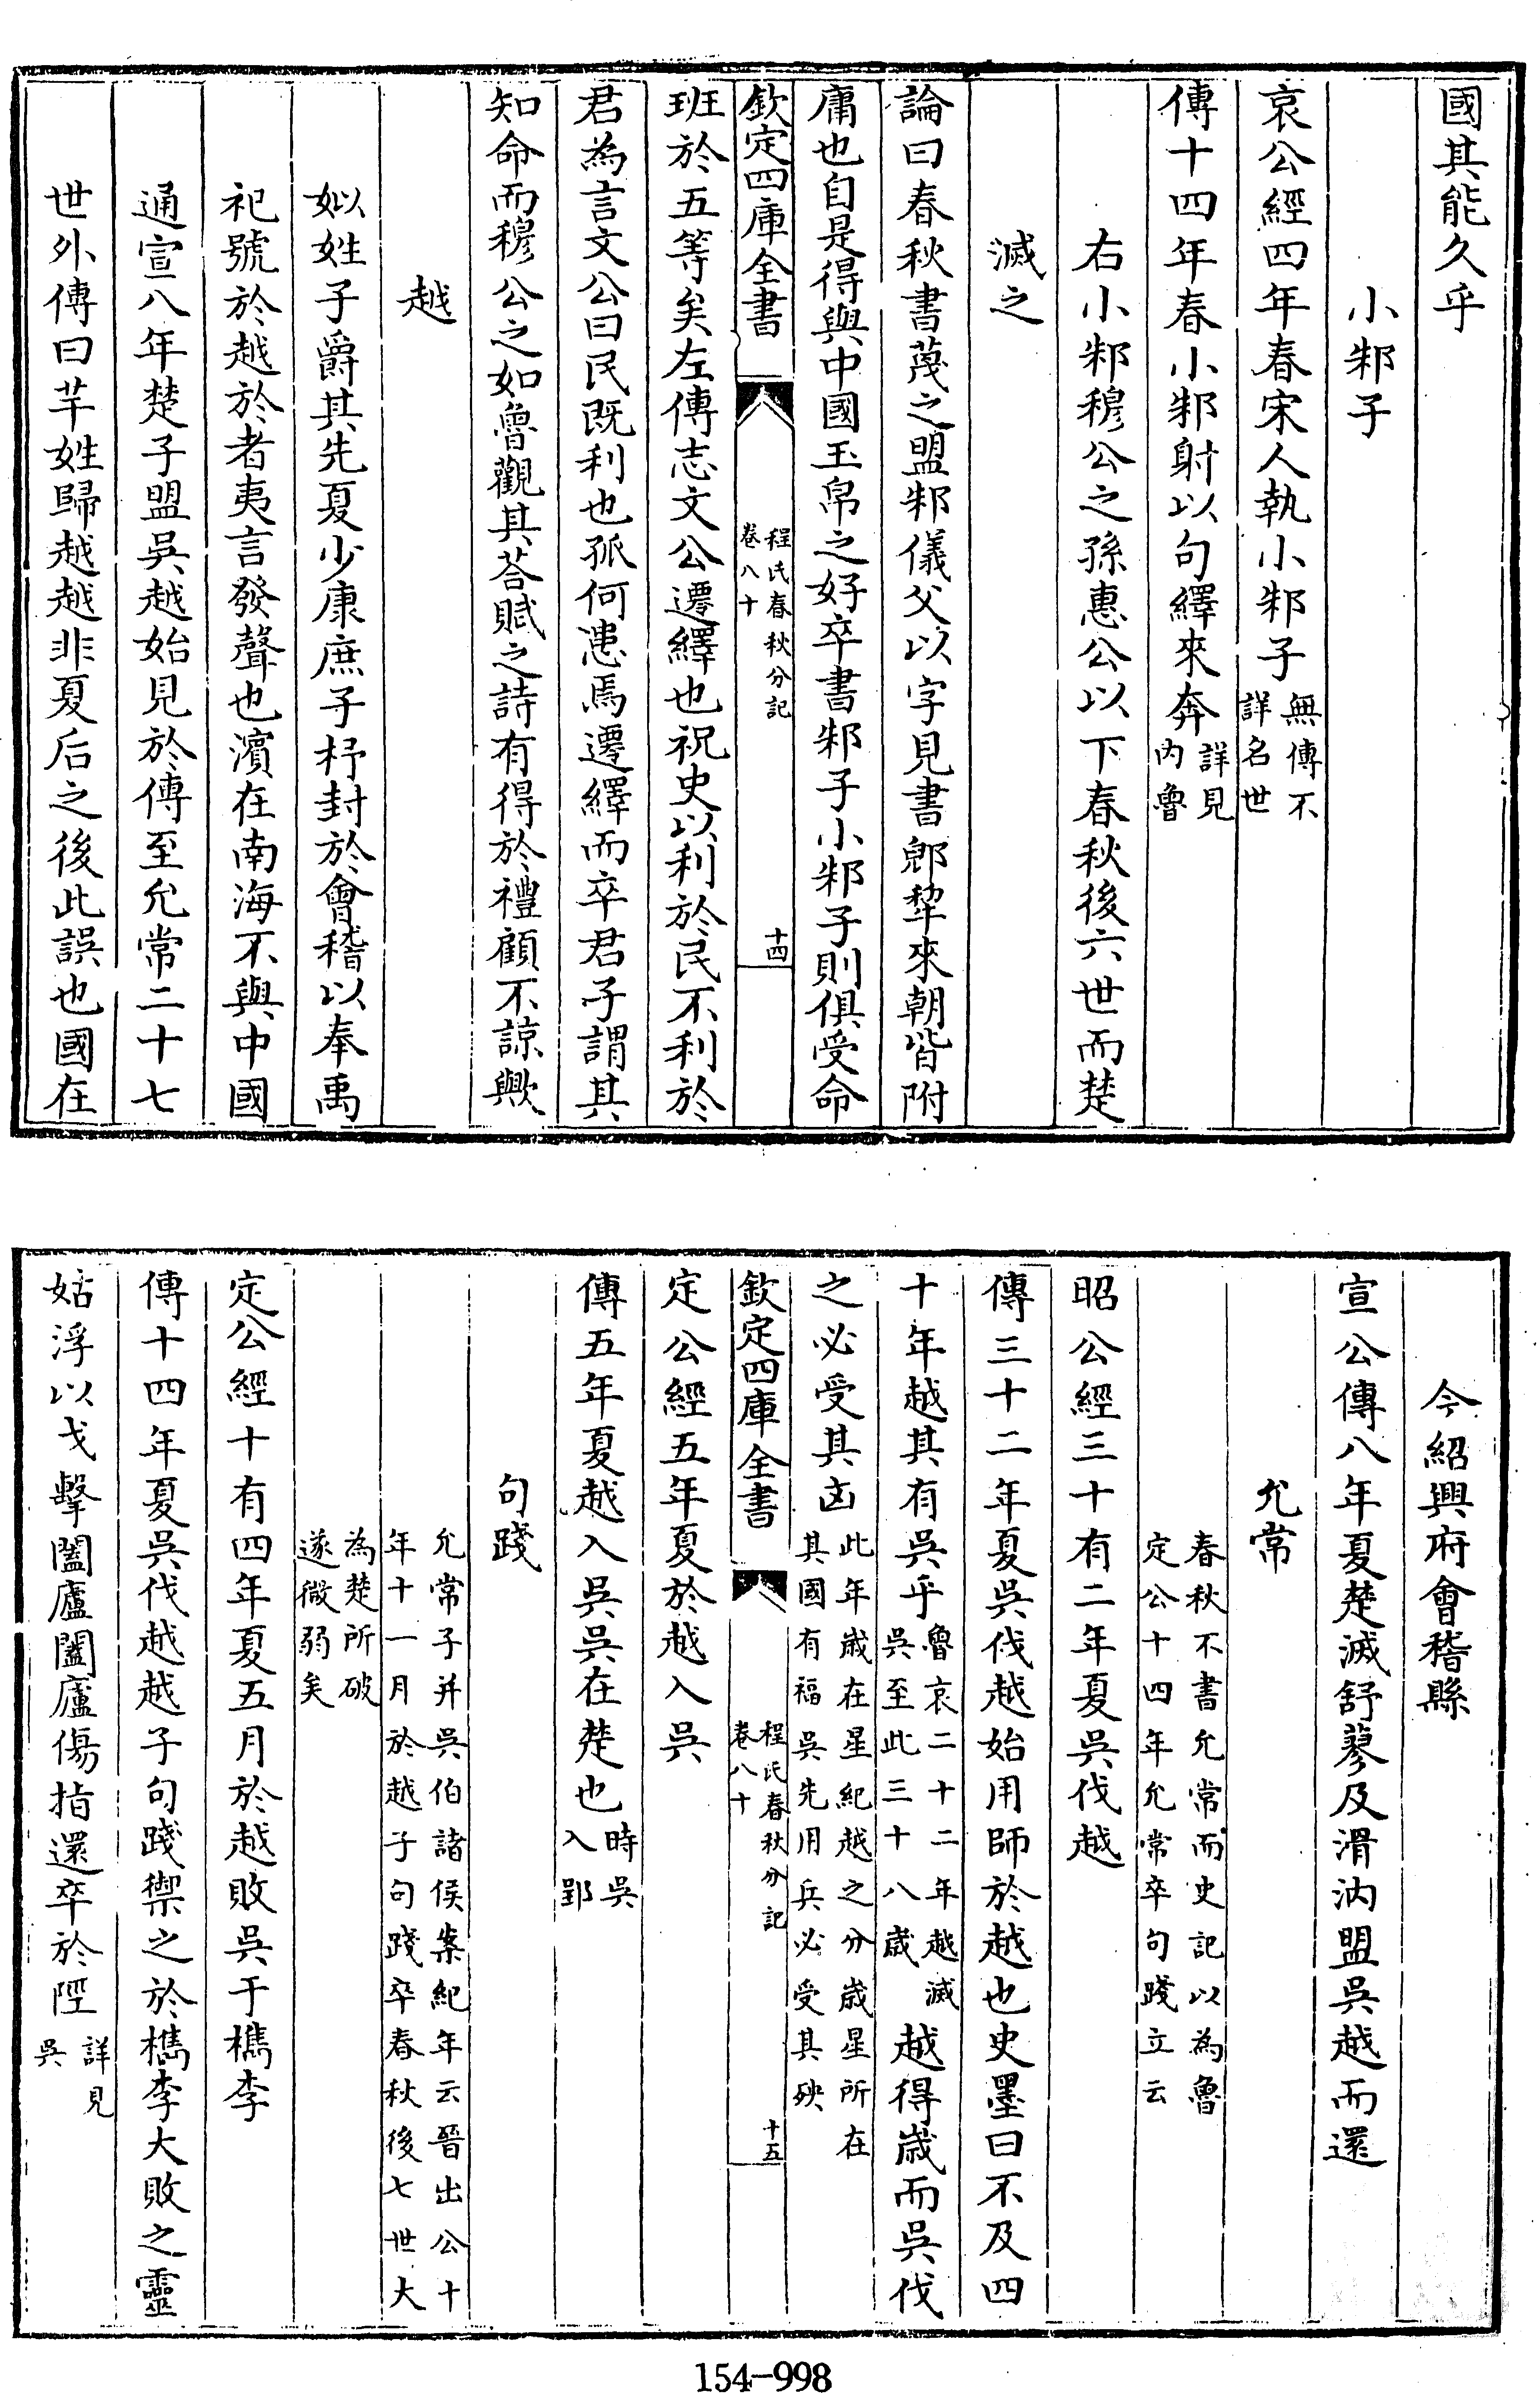 國其能久乎
小邾子
哀公經四年春宋人執小邾子無傳不詳名世
傳十四年春小邾射以句繹來奔詳見內魯
右小邾穆公之孫惠公以下春秋後六世而楚
滅之
論曰春秋書蔑之盟邾儀父以字見書郳犂來朝皆附
庸也自是得與中國玉帛之好卒書邾子小邾子則俱受命
欽定四庫全書
程氏春秋分記
卷八十
十四
班於五等矣左傳志文公遷繹也祝史以利於民不利於
君為言文公曰民既利也孤何患焉遷繹而卒君子謂其
知命而穆公之如魯觀其荅賦之詩有得於禮顧不諒歟
越
姒姓子爵其先夏少康庶子杼封於會稽以奉禹
祀號於越於者夷言發聲也濱在南海不與中國
通宣八年楚子盟吳越始見於傳至允常二十七
世外傳曰芊姓歸越越非夏后之後此誤也國在
今紹興府會稽縣
宣公傳八年夏楚滅舒蓼及滑汭盟吳越而還
允常春秋不書允常而史記以為魯定公十四年允常卒句踐立云
昭公經三十有二年夏吳伐越
傳三十二年夏吳伐越始用師於越也史墨曰不及四
十年越其有吳乎魯哀二十二年越滅吳至此三十八歲越得歲而吳伐
之必受其凶此年歲在星紀越之分歲星所在其國有福吳先用兵必受其殃
欽定四庫全書
程氏春秋分記
卷八十
十五
定公經五年夏於越入吳
傳五年夏越入吳吳在楚也時吳入郢
句踐
允常子并吳伯諸侯案紀年云晉出公十
年十一月於越子句踐卒春秋後七世大
為楚所破
遂微弱矣
定公經十有四年夏五月於越敗吳于檇李
傳十四年夏吳伐越越子句踐禦之於檇李大敗之靈
姑浮以戈擊闔廬闔廬傷指還卒於陘詳見吳
154-998